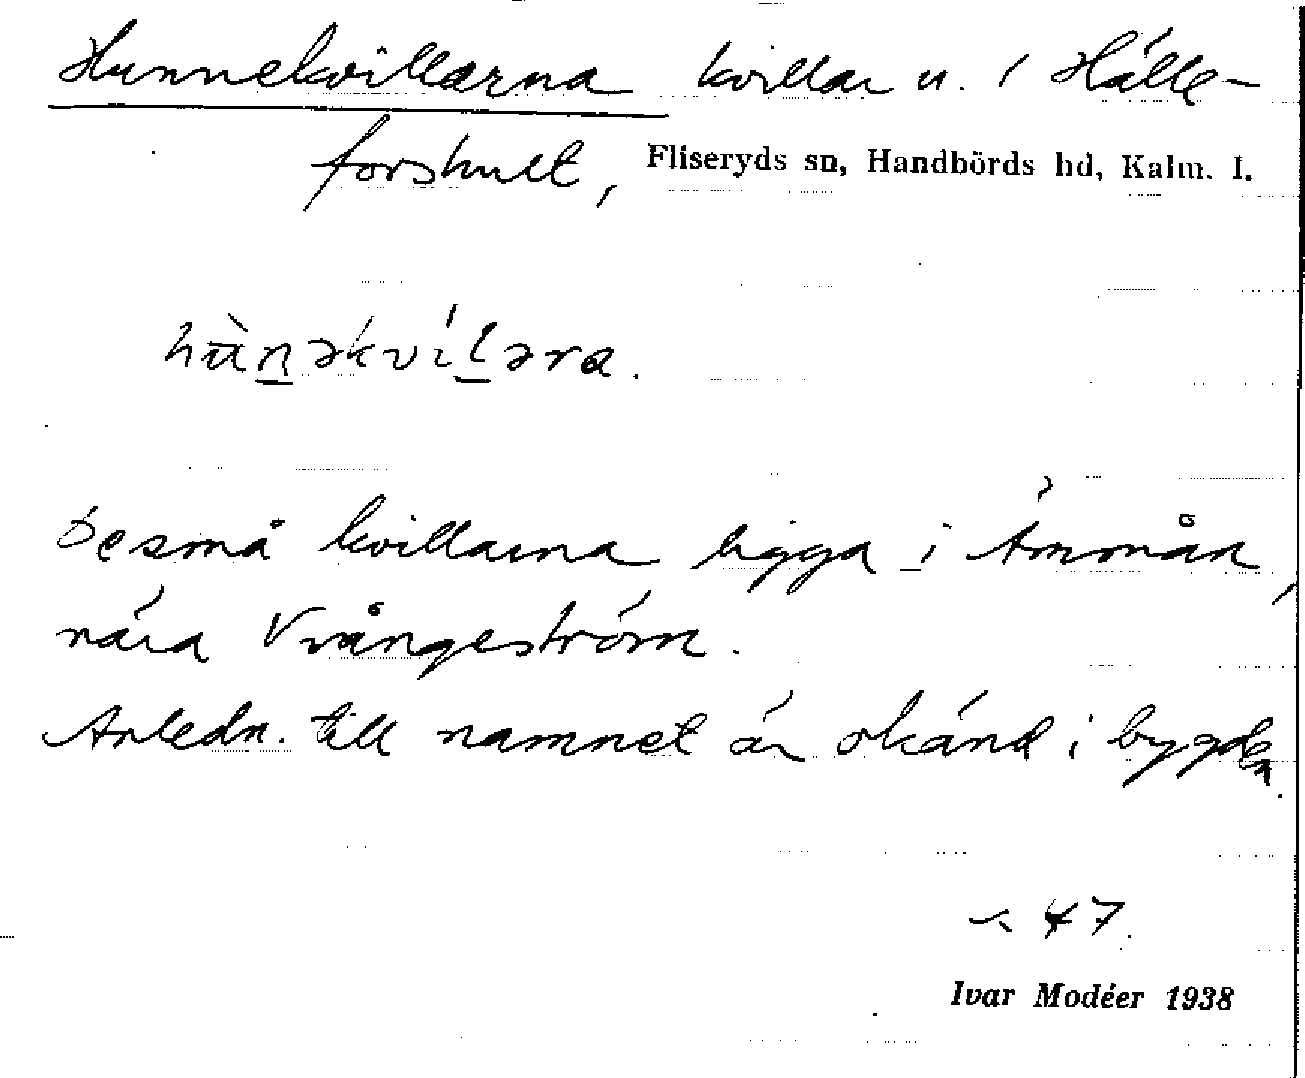 Hunnekvillarna kvillar u. / Hälle-
forshult, Fliseryds sn, Handbörds hd, Kalm. l.
hùn̲əkvíl̲əra.
De små kvillarna ligga i Ämmån,
nära Vrångeström.
Anledn. till namnet är okänd i bygden.
s. 47.
Ivar Modéer 1938